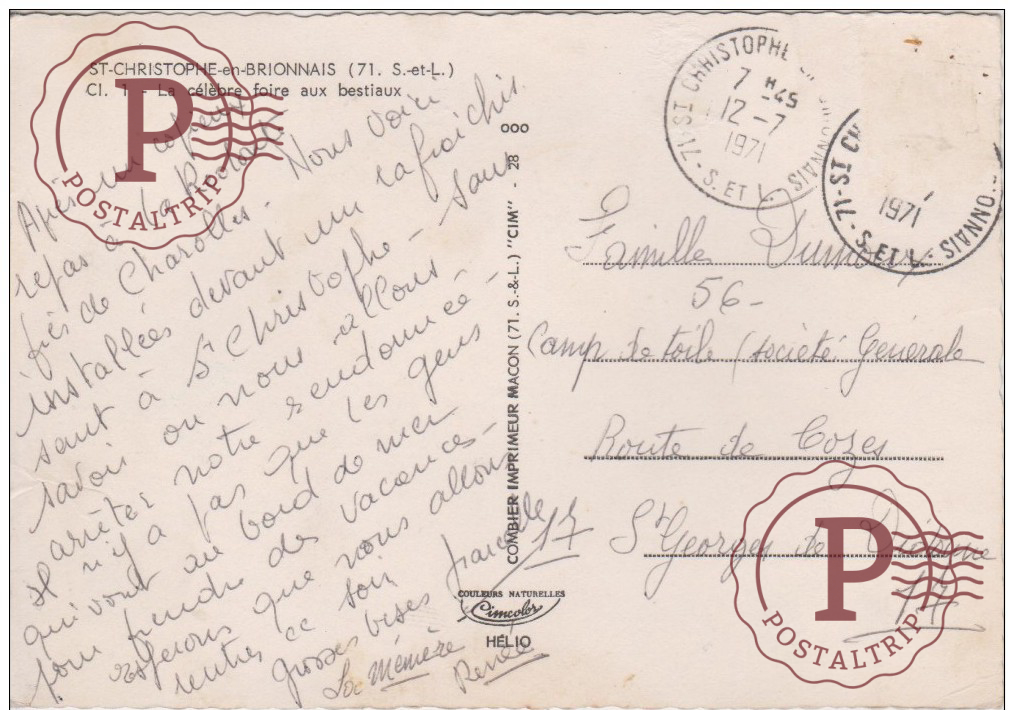 ST-CHRISTOPHE-en-BRIONNAIS (71. S.-et-L.)
Cl. 1 - La célèbre foire aux bestiaux
Après un copieux
repas à la
près de Charolles. Nous voici
installées devant un rafraichis
sant à St Christophe - sans
savoir ou nous allons
arrêter notre randonnée -
Il n'y a pas que les gens
qui vont au bord de mer
pour prendre des vacances -
espérons que vous allons
rentrés ce soir
grosses bises
La Mémère Renée
17
COMBIER IMPRIMEUR MACON (71. S.-&-L.) "CIM" - 28
ooo
COULEURS NATURELLES
Cimcolor
HÉLIO
71-ST CHRISTOPHE
BRIONNAIS
S. ET L.
7 H 45
12 -7
1971
71-ST CH
IONNAIS
S. ET L.
1971
Famille
56 -
Camp de toile (société Générale
Route de Cozes
St Georges de Didonne
17
P
POSTALTRIP
P
POSTALTRIP